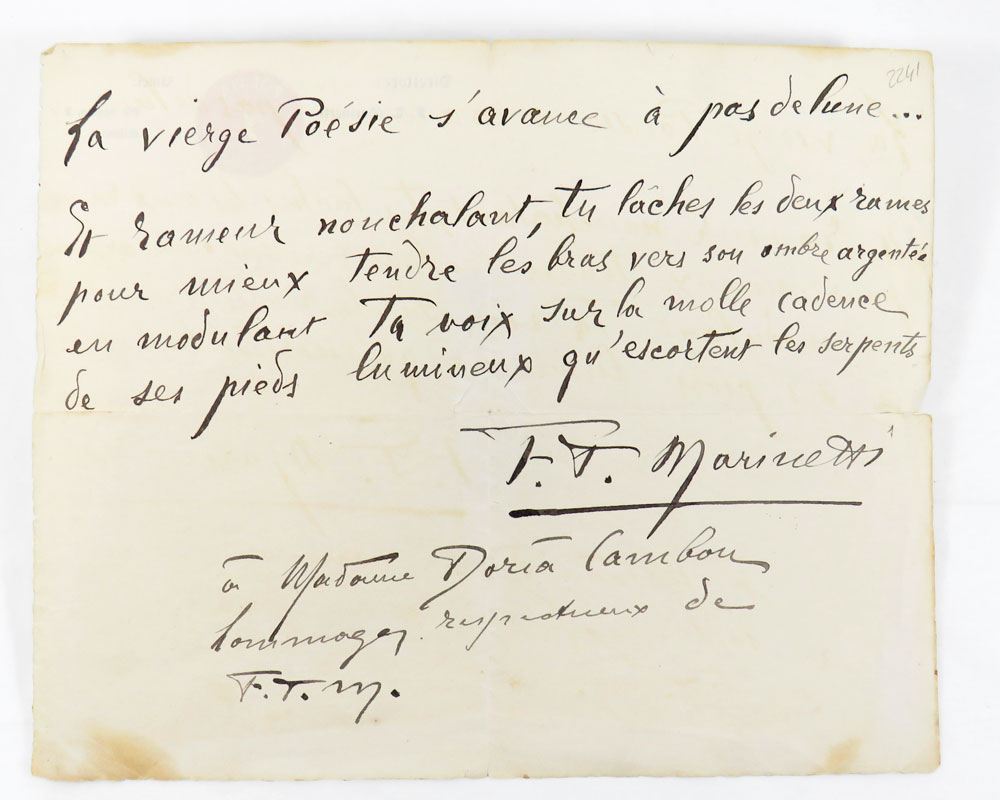 2241
La vierge Poésie s'avance à pas de lune...
Et rameur nonchalant, tu lâches les deux rames
pour mieux tendre les bras vers son ombre argentée
en modulant ta voix sur la molle cadence
de ses pieds lumineux qu'escortent les serpents
F. T. Marinetti
à Madame Doria Cambon
hommages respectueux de
F. T. M.